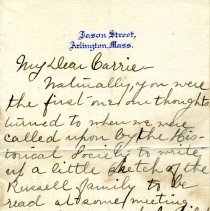 Jason Street,
Arlington, Mass.
My Dear Carrie—
Naturally, you were
the first one our thoughts
turned to when we were
called upon by the His-
torical Society to write
up a little sketch of the
Russell family to be
read at some meeting